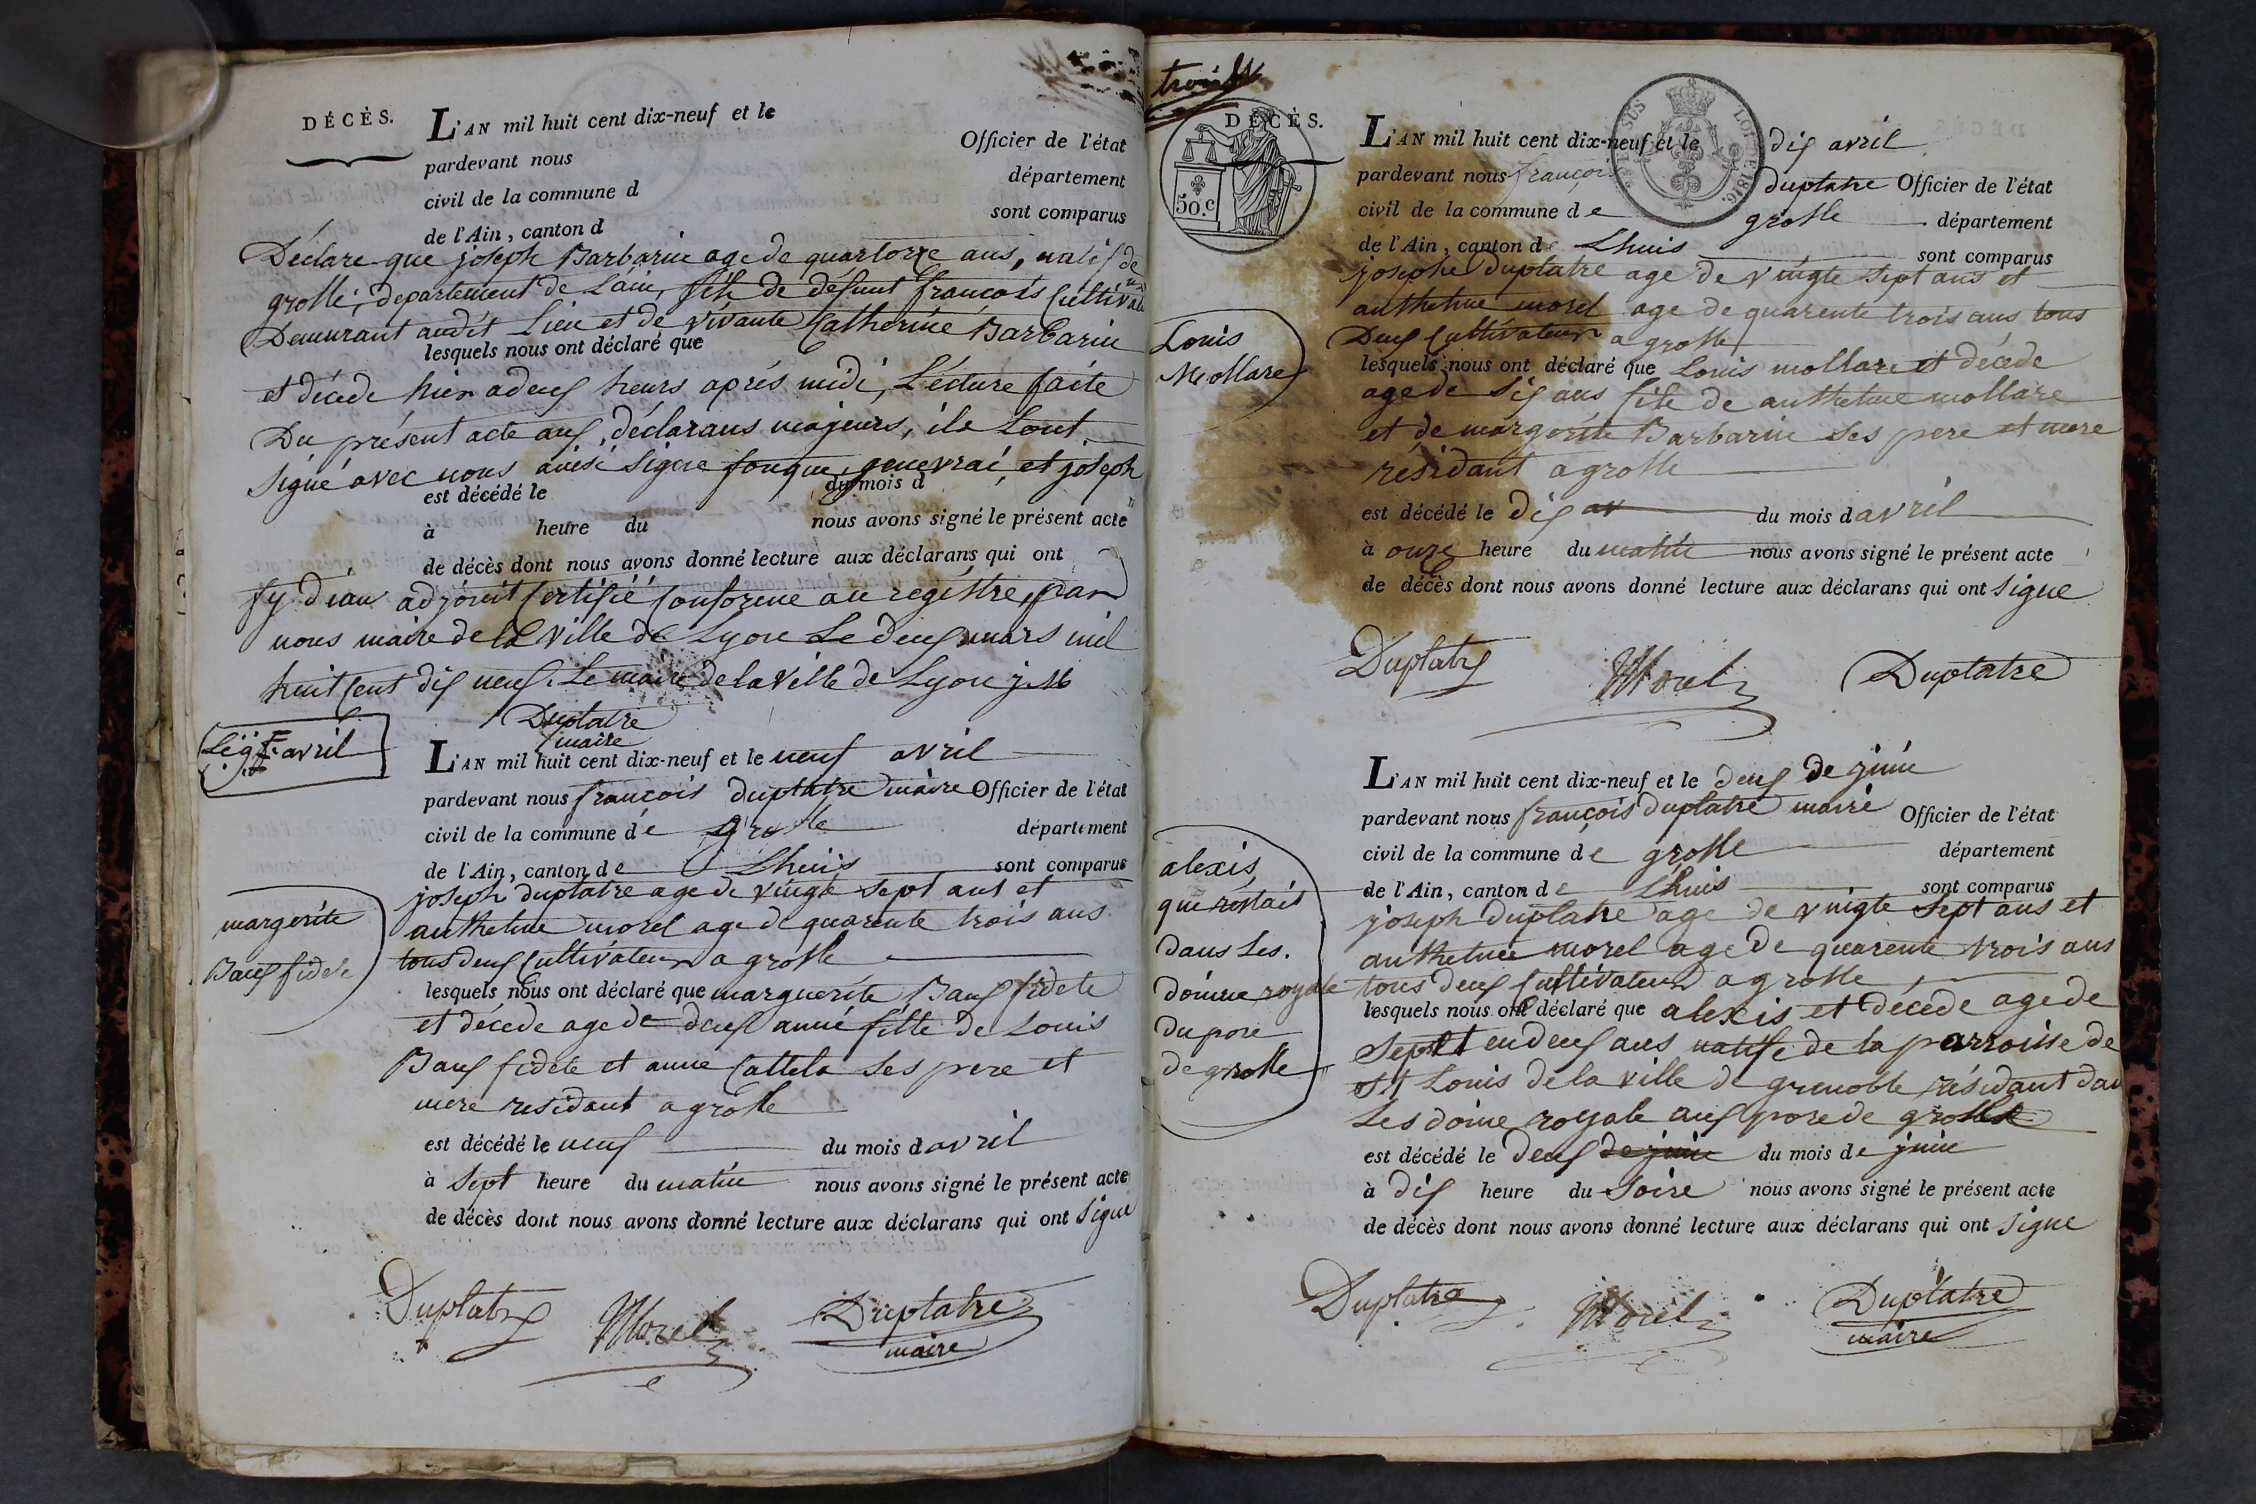 DÉCÈS.
L'AN mil huit cent dix-neuf et le
pardevant nous Officier de l'état
civil de la commune d département
de l'Ain, canton d sont comparus
Déclare que joseph Barbarin age de quartorze ans, natif de
grolle, departement de Lain, fils de défunt francois Cultivat
Demurant audit Lieu et de vivante Catherine Barbarin
lesquels nous ont déclaré que
et décede hier a deux heurs aprés midi, Lécture faite
Du présent acte aux déclarans majeurs, ils Sont
Signé avec nous
est décédé le du mois d
à heure du nous avons signé le présent acte
de décès dont nous avons donné lecture aux déclarans qui ont
adjoint Certifié Conforme au registre, par
nous maire de la ville de Lyon Le deux mars mil
huit Cent dix neuf. Le maire de la ville de Lyon
Duplatre
maire
avril
L'AN mil huit cent dix-neuf et le neuf avril
pardevant nous françois duplatre maire Officier de l'état
civil de la commune de grolle département
de l'Ain, canton de Lhuis sont comparus
joseph duplatre age de vingte sept ans et
anthelme morel age de quarente trois ans
tous deux Cultivateur a grolle
margerite
Baux fidele
lesquels nous ont déclaré que marguerite Baux fidele
et décede age de deux anné fille de Louis
Baux fidele et anne Cattela ses pere et
mere residant a grolle
est décédé le neuf du mois d avril
à Sept heure du matin nous avons signé le présent acte
de décès dont nous avons donné lecture aux déclarans qui ont Signe
Duplatre Morel Duplatre
maire
trois
DÉCÈS.
50.c
1816.
L'AN mil huit cent dix-neuf et le dix avril
pardevant nous françois duplatre Officier de l'état
civil de la commune de grolle département
de l'Ain, canton de Lhuis sont comparus
josephe Duplatre age de vingte sept ans et
anthelme morel age de quarente trois ans tous
Deux Cultivateur a grolle
Louis
Mollare
lesquels nous ont déclaré que Louis mollare et décede
age de Six ans fils de anthelme mollare
et de margerite Barbarin ses pere et mere
résidant a grolle
est décédé le dix av du mois d avril
à onze heure du matin nous avons signé le présent acte
de décès dont nous avons donné lecture aux déclarans qui ont Signe
Duplatre Morel Duplatre
L'AN mil huit cent dix-neuf et le deux de juin
pardevant nous françois duplatre maire Officier de l'état
civil de la commune de grolle département
de l'Ain, canton de Lhuis sont comparus
joseph duplatre age de vingte sept ans et
anthelme morel age de quarente trois ans
tous deux Cultivateur a grolle
alexis
que réstait
dans Les.
doinne royale
du pore
de grolle
lesquels nous ont déclaré que alexis et décede age de
ans natife de la parroisse de
St Louis de la ville de grenoble résidant dan
Les doine royale aux pore de grolle
est décédé le deux de juin du mois de juin
à dix heure du Soire nous avons signé le présent acte
de décès dont nous avons donné lecture aux déclarans qui ont Signe
Duplatre Morel Duplatre
maire